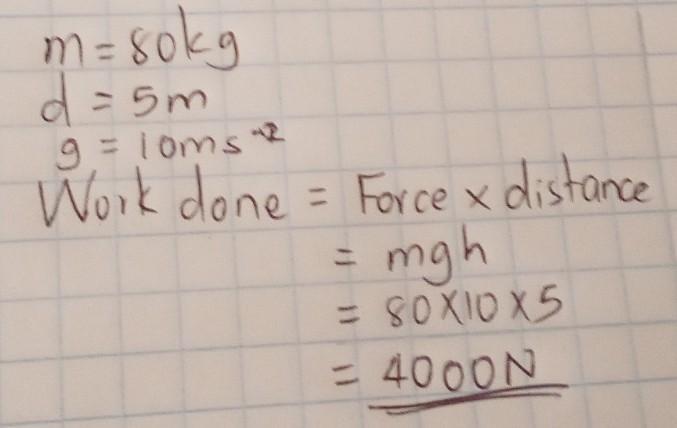 m = 80kg
d = 5m
g = 10ms⁻²
Work done = Force × distance
= mgh
= 80×10×5
= 4000N